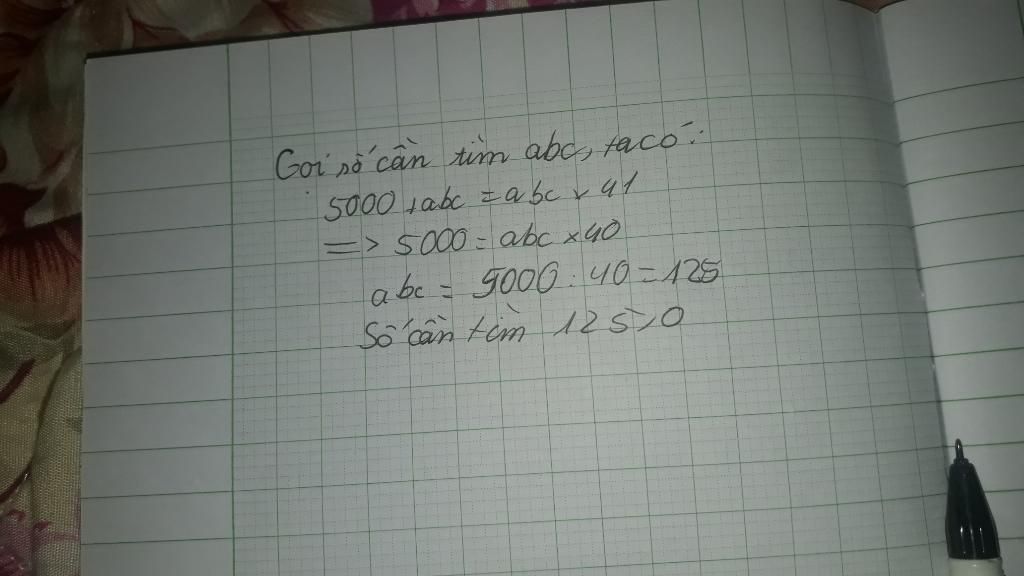 Gọi số cần tìm abc, ta có:
5000 + abc = abc x 41
=> 5000 = abc x 40
abc = 5000 : 40 = 125
Số cần tìm 125,0